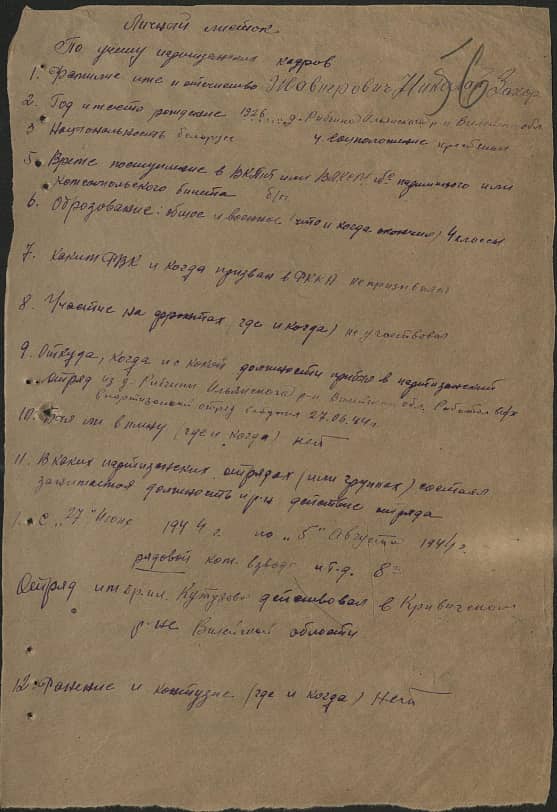 Личный листок
По учету партизанских кадров
1. Фамилие имя и отчество Жавнерович Николай Захар
56
2. Год и место рождение 1926 д. Рабунь Ильянского р-н Вилейской обл.
3 Национальность белорус 4. соцположение крестьян
5 Время поступление в ВКПб или ВЛКСМ № партийного или
Комсомольского билета б/п
6. Образование: общое и военное (что и когда окончил) 4 классы
7. Каким РВК и когда призван в РККА не призывался
8. Участие на фронтах (где и когда) не участвовал
9. Откуда, когда и с какой должности прибыл в партизанский
отряд из д. Ильянского р-н Вилейской обл. Работал в с/х
в партизанский отряд вступил 27.06.44 г.
10. Был ли в плену (где и когда) нет
11. В каких партизанских отрядах (или группах) состоял
занимаемая должность и р-н действие отряда
1. с "27" Июня 1944 г. по "5" Августа 1944 г.
рядовой ком. взвода и т.д. 8
Отряд имени Кутузова действовал в Кривичском
р-не Вилейской области
12. Ранение и контузие (где и когда) нет